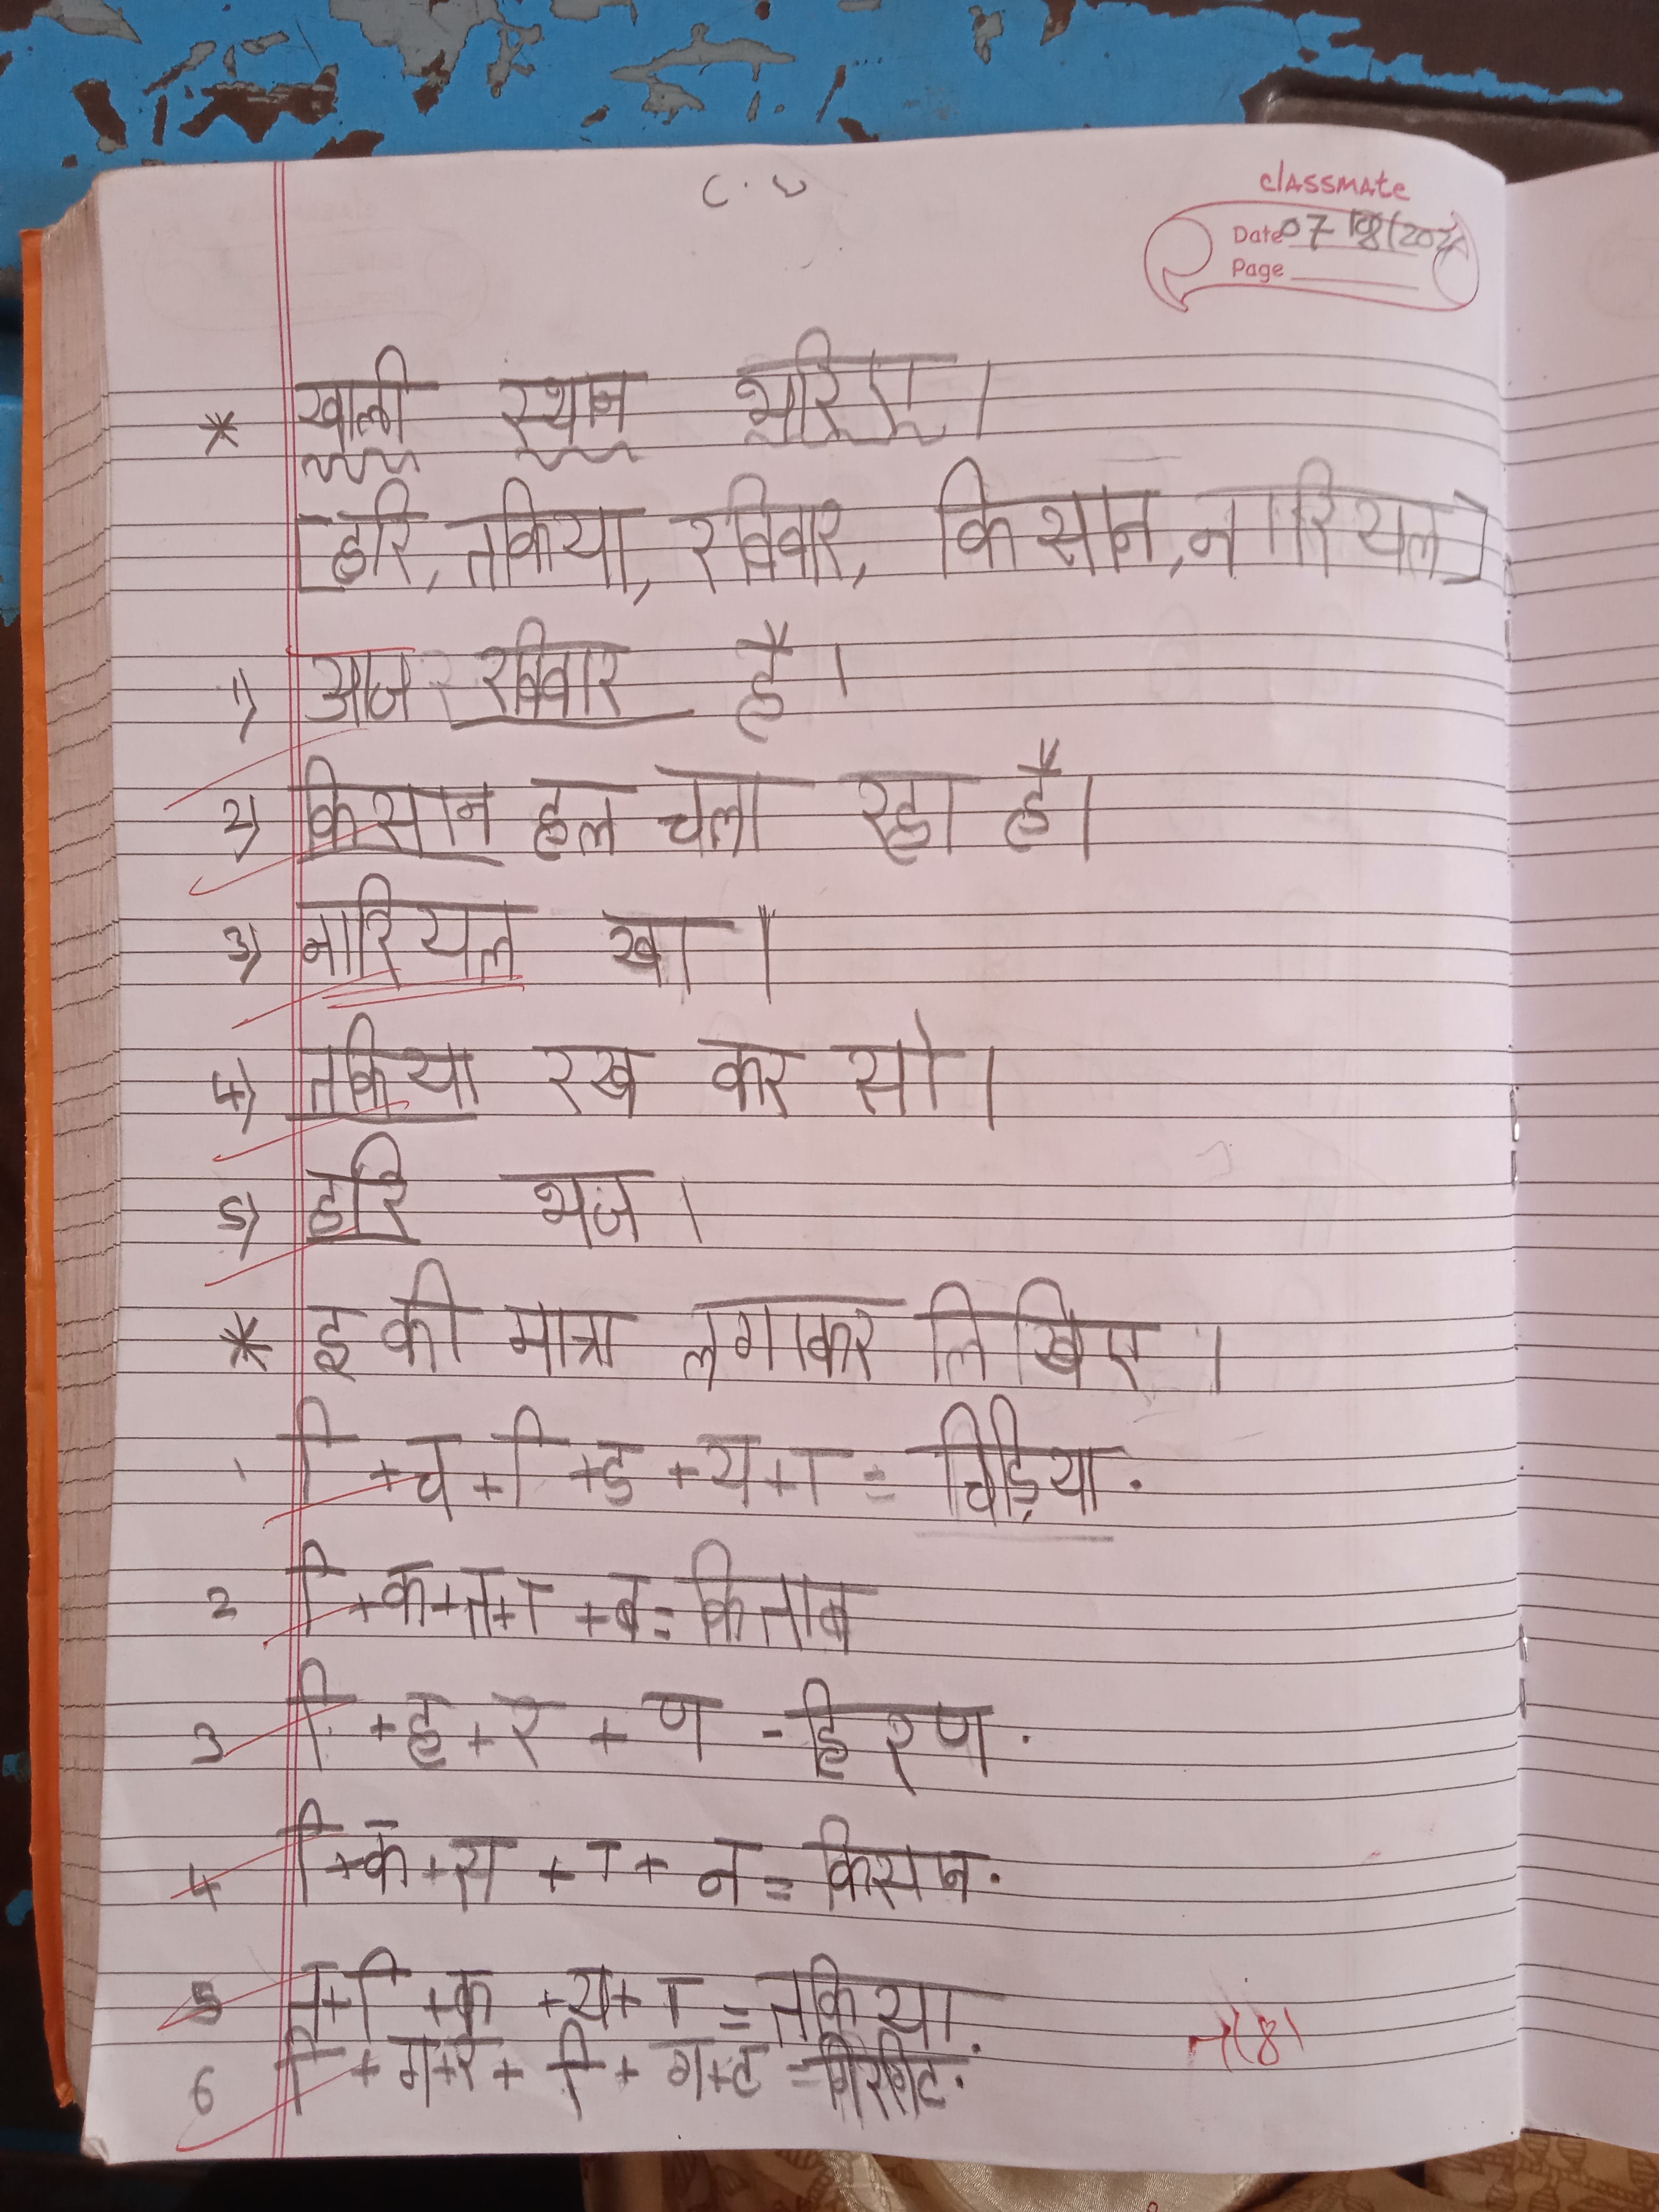 C.W
classmate
Date 07/08/202
Page
* खाली स्थान भरिए।
[हरि, तकिया, रविवार, किसान, नारियल]
1) आज रविवार है।
2) किसान हल चला रहा है।
3) नारियल खा।
4) तकिया रख कर सो।
5) हरि भज।
* इ की मात्रा लगाकर लिखिए।
1 ि+च+ि+ड+य+ा = चिड़िया.
2 ि+क+त+ा+ब = किताब
3 ि+ह+र+ण - हिरण.
4 ि+क+स+ा+न = किसान.
5 त+ि+क+य+ा = तकिया.
6 ि+ग+र+ि+ग+ट = गिरगिट.